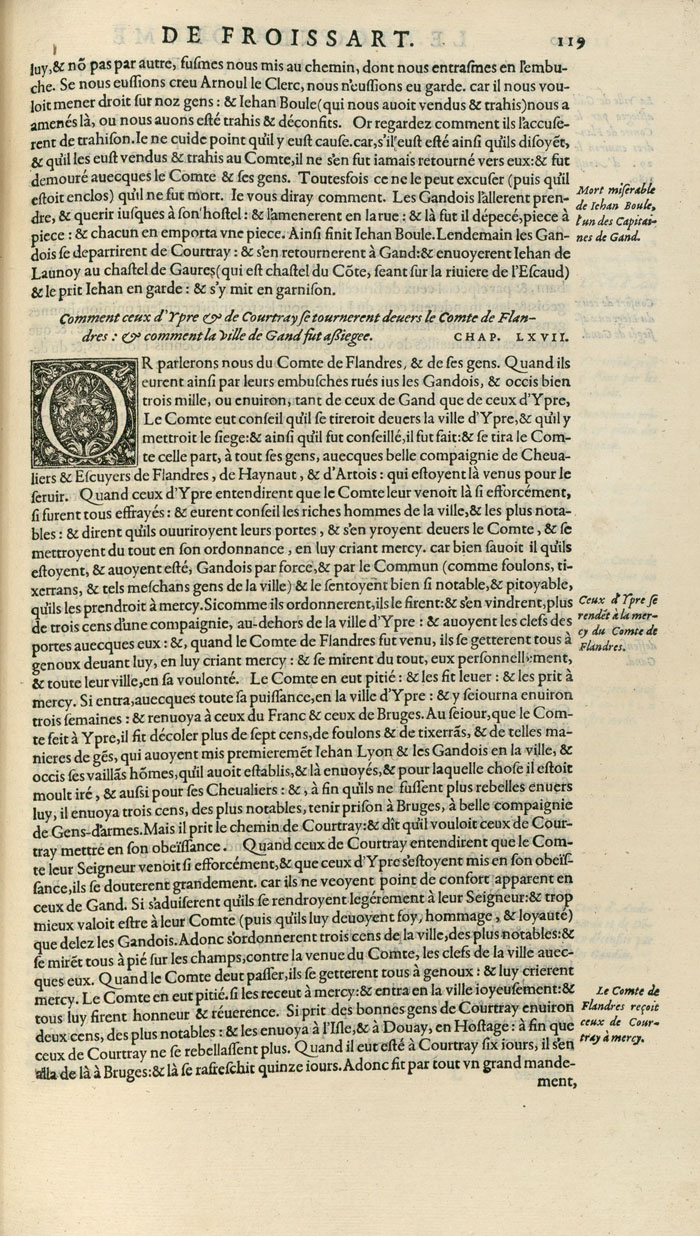 DE FROISSART. 119
luy,& nõ pas par autre, fuſmes nous mis au chemin, dont nous entraſmes en l'embu-
che. Se nous euſſions creu Arnoul le Clerc, nous n'euſſions eu garde. car il nous vou-
loit mener droit ſur noz gens : & Iehan Boule(qui nous auoit vendus & trahis)nous a
amenés là, ou nous auons eſté trahis & déconfits. Or regardez comment ils l'accuſe-
rent de trahiſon.Ie ne cuide point qu'il y euſt cauſe.car,s'il euſt eſté ainſi qu'ils diſoyẽt,
& qu'il les euſt vendus & trahis au Comte,il ne s'en fut iamais retourné vers eux:& fut
demouré auecques le Comte & ſes gens. Toutesfois ce ne le peut excuſer (puis qu'il
eſtoit enclos) qu'il ne fut mort. Ie vous diray comment. Les Gandois l'allerent pren-
dre, & querir iuſques à ſon'hoſtel : & l'amenerent en la rue : & là fut il dépecé,piece à
piece : & chacun en emporta vne piece. Ainſi finit Iehan Boule.Lendemain les Gan-
dois ſe deparrirent de Courtray : & s'en retournerent à Gand:& enuoyerent Iehan de
Launoy au chaſtel de Gaures(qui eſt chaſtel du Cõte, ſeant ſur la riuiere de l'Eſcaud)
& le prit Iehan en garde : & s'y mit en garniſon.
Mort miſerable
de Iehan Boule,
l'un des Capitai-
nes de Gand.
Comment ceux d'Ypre & de Courtray ſe tournerent deuers le Comte de Flan-
dres : & comment la ville de Gand fut aßiegee. CHAP. LXVII.
OR parlerons nous du Comte de Flandres, & de ſes gens. Quand ils
eurent ainſi par leurs embuſches rués ius les Gandois, & occis bien
trois mille, ou enuiron, tant de ceux de Gand que de ceux d'Ypre,
Le Comte eut conſeil qu'il ſe tireroit deuers la ville d'Ypre,& qu'il y
mettroit le ſiege:& ainſi qu'il fut conſeillé,il fut fait:& ſe tira le Com-
te celle part, à tout ſes gens, auecques belle compaignie de Cheua-
liers & Eſcuyers de Flandres, de Haynaut, & d'Artois : qui eſtoyent là venus pour le
ſeruir. Quand ceux d'Ypre entendirent que le Comte leur venoit là ſi efforcément,
ſi furent tous effrayés : & eurent conſeil les riches hommes de la ville,& les plus nota-
bles : & dirent qu'ils ouuriroyent leurs portes, & s'en yroyent deuers le Comte, & ſe
mettroyent du tout en ſon ordonnance, en luy criant mercy. car bien ſauoit il qu'ils
eſtoyent, & auoyent eſté, Gandois par force,& par le Commun (comme foulons, ti-
xerrans, & tels meſchans gens de la ville) & le ſentoyent bien ſi notable,& pitoyable,
qu'ils les prendroit à mercy.Sicomme ils ordonnerent,ils le firent:& s'en vindrent,plus
de trois cens d'une compaignie, au-dehors de la ville d'Ypre : & auoyent les clefs des
portes auecques eux : &, quand le Comte de Flandres fut venu, ils ſe getterent tous à
genoux deuant luy, en luy criant mercy : & ſe mirent du tout, eux perſonnellement,
& toute leur ville,en ſa voulonté. Le Comte en eut pitié : & les fit leuer : & les prit à
mercy. Si entra,auecques toute ſa puiſſance,en la ville d'Ypre : & y ſeiourna enuiron
trois ſemaines : & renuoya à ceux du Franc & ceux de Bruges. Au ſeiour,que le Com-
te feit à Ypre,il fit décoler plus de ſept cens,de foulons & de tixerrãs, & de telles ma-
nieres de gẽs, qui auoyent mis premieremẽt Iehan Lyon & les Gandois en la ville, &
occis ſes vaillãs hõmes,qu'il auoit eſtablis,& là enuoyés,& pour laquelle choſe il eſtoit
moult iré, & auſſi pour ſes Cheualiers : &, à fin qu'ils ne fuſſent plus rebelles enuers
luy, il enuoya trois cens, des plus notables, tenir priſon à Bruges, à belle compaignie
de Gens-d'armes.Mais il prit le chemin de Courtray:& dit qu'il vouloit ceux de Cour-
tray mettre en ſon obeïſſance. Quand ceux de Courtray entendirent que le Com-
te leur Seigneur venoit ſi efforcément,& que ceux d'Ypre s'eſtoyent mis en ſon obeïſ-
ſance,ils ſe douterent grandement. car ils ne veoyent point de confort apparent en
ceux de Gand. Si s'aduiſerent qu'ils ſe rendroyent legérement à leur Seigneur:& trop
mieux valoit eſtre à leur Comte (puis qu'ils luy deuoyent foy, hommage, & loyauté)
que delez les Gandois.Adonc s'ordonnerent trois cens de la ville,des plus notables:&
ſe mirẽt tous à pié ſur les champs,contre la venue du Comte, les clefs de la ville auec-
ques eux. Quand le Comte deut paſſer,ils ſe getterent tous à genoux : & luy crierent
mercy. Le Comte en eut pitié.ſi les receut à mercy:& entra en la ville ioyeuſement:&
tous luy firent honneur & réuerence. Si prit des bonnes gens de Courtray enuiron
deux cens, des plus notables : & les enuoya à l'Iſle,& à Douay, en Hoſtage : à fin que
ceux de Courtray ne ſe rebellaſſent plus. Quand il eut eſté à Courtray ſix iours, il s'en
alla de là à Bruges:& là ſe rafreſchit quinze iours.Adonc fit par tout vn grand mande-
ment,
Ceux d'Ypre ſe
rendẽt à la mer-
cy du Comte de
Flandres.
Le Comte de
Flandres reçoit
ceux de Cour-
tray à mercy.